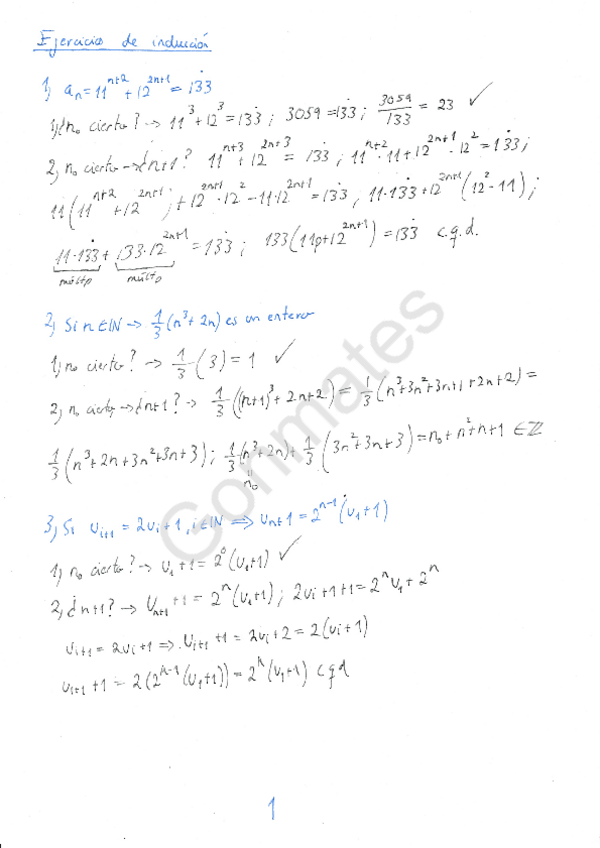 Ejercicios de inducción
1) aₙ = 11ⁿ⁺² + 12²ⁿ⁺¹ = 133̇
1) ¿n₀ cierto? → 11³ + 12³ = 133̇ ; 3059 = 133̇ ; 3059/133 = 23 ✓
2) n₀ cierto → ¿n+1? 11ⁿ⁺³ + 12²ⁿ⁺³ = 133̇ ; 11ⁿ⁺² · 11 + 12²ⁿ⁺¹ · 12² = 133̇ ;
11(11ⁿ⁺² + 12²ⁿ⁺¹) + 12²ⁿ⁺¹ · 12² - 11 · 12²ⁿ⁺¹ = 133̇ , 11 · 133̇ + 12²ⁿ⁺¹(12² - 11) ;
11 · 133̇ + 133 · 12²ⁿ⁺¹ = 133̇ ; 133(11p + 12²ⁿ⁺¹) = 133̇ c.q.d.
múltp múltp
2) Si n ∈ ℕ → 1/3 (n³ + 2n) es un entero
1) n₀ cierto? → 1/3 (3) = 1 ✓
2) n₀ cierto → ¿n+1? → 1/3 ((n+1)³ + 2n+2) = 1/3 (n³ + 3n² + 3n + 1 + 2n + 2) =
1/3 (n³ + 2n + 3n² + 3n + 3) ; 1/3 (n³ + 2n) + 1/3 (3n² + 3n + 3) = n₀ + n² + n + 1 ∈ ℤ
n₀
3) Si uᵢ₊₁ = 2uᵢ + 1, i ∈ ℕ ⟹ uₙ + 1 = 2ⁿ⁻¹(u₁ + 1)
1) n₀ cierto? → u₁ + 1 = 2⁰(u₁ + 1) ✓
2) ¿n+1? → uₙ₊₁ + 1 = 2ⁿ(u₁ + 1) ; 2uᵢ + 1 + 1 = 2ⁿu₁ + 2ⁿ
uᵢ₊₁ = 2uᵢ + 1 ⟹ uᵢ₊₁ + 1 = 2uᵢ + 2 = 2(uᵢ + 1)
uᵢ₊₁ + 1 = 2(2ⁿ⁻¹(u₁ + 1)) = 2ⁿ(u₁ + 1) c q d
1
Gonmates